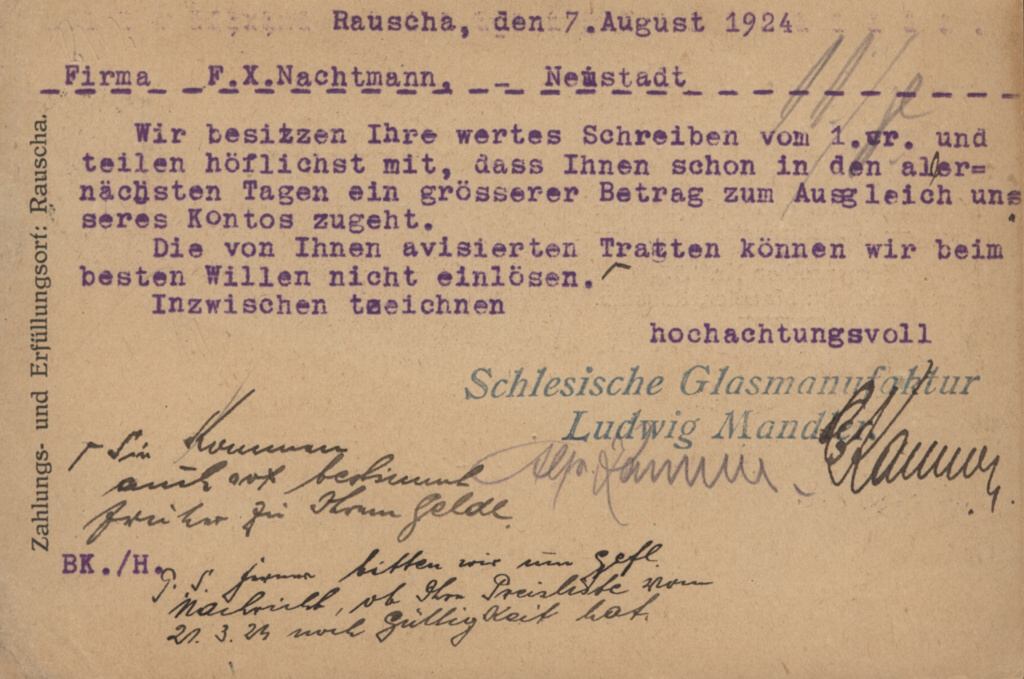 Rauscha, den 7.August 1924
Firma F.X.Nachtmann, -- Neustadt
Wir besitzen Ihre wertes Schreiben vom 1.vr. und
teilen höflichst mit, dass Ihnen schon in den aller=
nächsten Tagen ein grösserer Betrag zum Ausgleich uns
seres Kontos zugeht.
Die von Ihnen avisierten Tratten können wir beim
besten Willen nicht einlösen.
Inzwischen tzeichnen
hochachtungsvoll
Schlesische Glasmanufaktur
Ludwig Mandler
Sie kommen
auch bestimmt
früher zu Ihrem Gelde.
BK./H.
P. S. ferner bitten wir um gefl.
Nachricht, ob Ihre Preisliste vom
21.3.24 noch Gültigkeit hat.
Zahlungs- und Erfüllungsort: Rauscha.